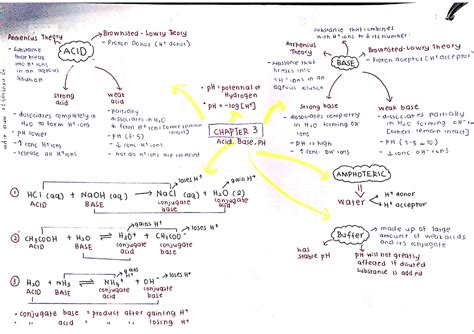 Arrhenius Theory
• Substance that breaks into H⁺ ions in an aqueous solution
ACID
Brownsted-Lowry Theory
• Proton Donor (H⁺ donor)
strong acid
• dissociates completely in H₂O to form H⁺ ions
• pH lower
• ↑ conc H⁺ ions
• release all H⁺ ions
weak acid
• partially dissociates in H₂O &
form H⁺ ions
• pH (3-5)
• ↓ conc H⁺ ions
• not all H⁺ ions are ionized
• pH = potential of Hydrogen
• pH = -log[H⁺]
CHAPTER 3
Acid, Base, PH
substance that combines with H⁺ ions to ↓ its number
Arrhenius Theory
• Substance that breaks into OH⁻ ions in an aqueous solution
BASE
Brownsted-Lowry Theory
• Proton acceptor (H⁺ acceptor)
strong base
• dissociates completely in H₂O forming OH⁻ ions
• pH is high
• ↑ conc OH⁻ ions
weak base
• dissociates partially in H₂O forming OH⁻
(others remain intact)
• ↓ conc OH⁻ ions
AMPHOTERIC
water
H⁺ donor
H⁺ acceptor
Buffer
made up of large amount of weak acids and its conjugate
has stable pH
pH will not greatly affected if diluted
substance is added
loses H⁺
① HCl (aq) + NaOH (aq) → NaCl (aq) + H₂O (l)
ACID BASE conjugate base conjugate acid
gains H⁺
loses H⁺
② CH₃COOH + H₂O ⇌ H₃O⁺ + CH₃COO⁻
ACID BASE conjugate acid conjugate base
gains H⁺
loses H⁺
③ H₂O + NH₃ ⇌ NH₄⁺ + OH⁻
ACID BASE conjugate acid conjugate base
• conjugate base = product after gaining H⁺
• " acid = " " losing H⁺